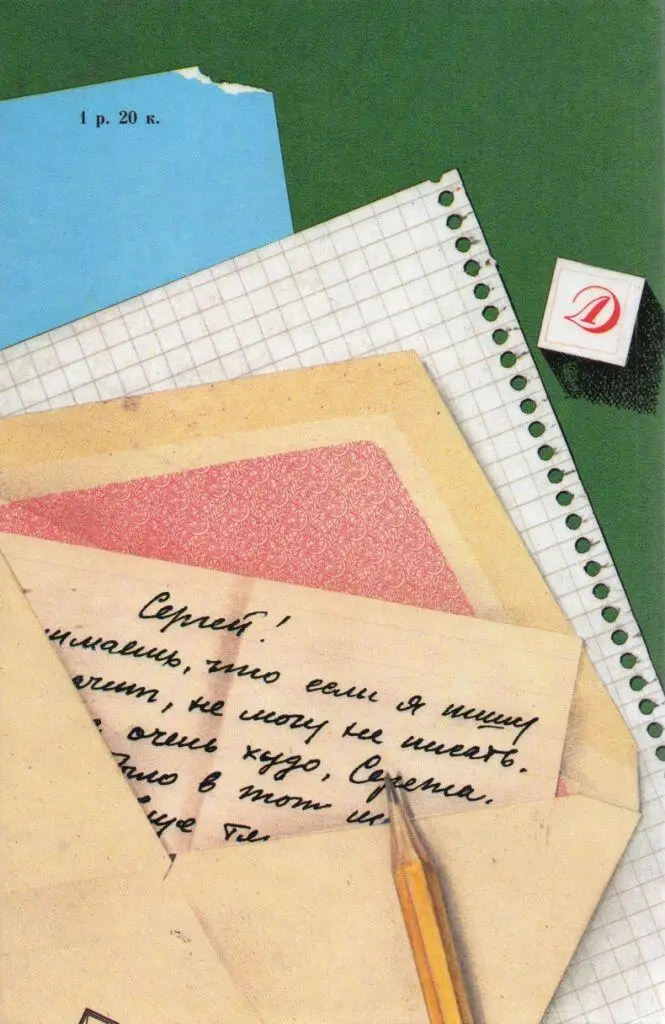 1 р. 20 к.
Д
Сергей!
имаешь, что если я пишу
ачит, не могу не писать.
очень худо, Сережа.
было в тот
еще